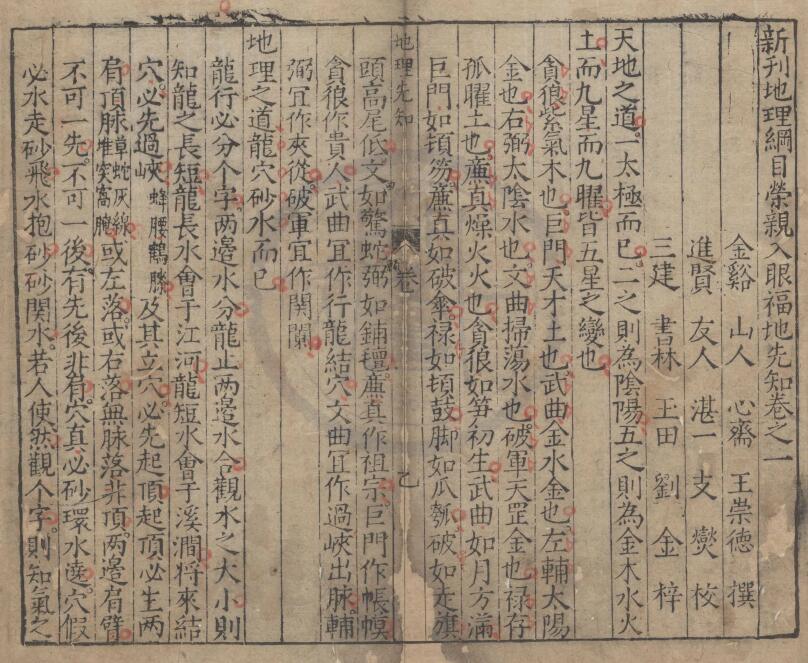 新刊地理綱目榮親入眼福地先知卷之一
金谿 山人 心齋 王崇德 撰
進賢 友人 湛一 支燮 校
三建 書林 玉田 劉金 梓
天地之道一太極而已二之則為陰陽五之則為金木水火
土而九星而九曜皆五星之變也
貪狼紫氣木也巨門天才土也武曲金水金也左輔太陽
金也右弼太陰水也文曲掃蕩水也破軍天罡金也祿存
孤曜土也廉真燥火火也貪狼如笋初生武曲如月方滿
巨門如頓笏廉真如破傘祿如頓鼓脚如瓜瓠破如走旗
地理先知 卷一 乙
頭高尾低文如驚蛇弼如鋪氊廉真作祖宗巨門作帳幙
貪狼作貴人武曲宜作行龍結穴文曲宜作過峽出脉輔
弼宜作夾從破軍宜作関闌
地理之道龍穴砂水而已
龍行必分个字两邉水分龍止两邉水合觀水之大小則
知龍之長短龍長水會于江河龍短水會于溪澗將來結
穴必先過峽蜂腰鶴膝及其立穴必先起頂起頂必生两
肩頂脉草蛇灰線堆突窩脃或左落或右落無脉落非頂两邉肩臂
不可一先不可一後有先後非有穴真必砂環水遶穴假
必水走砂飛水抱砂砂関水若人使然觀个字則知氣之